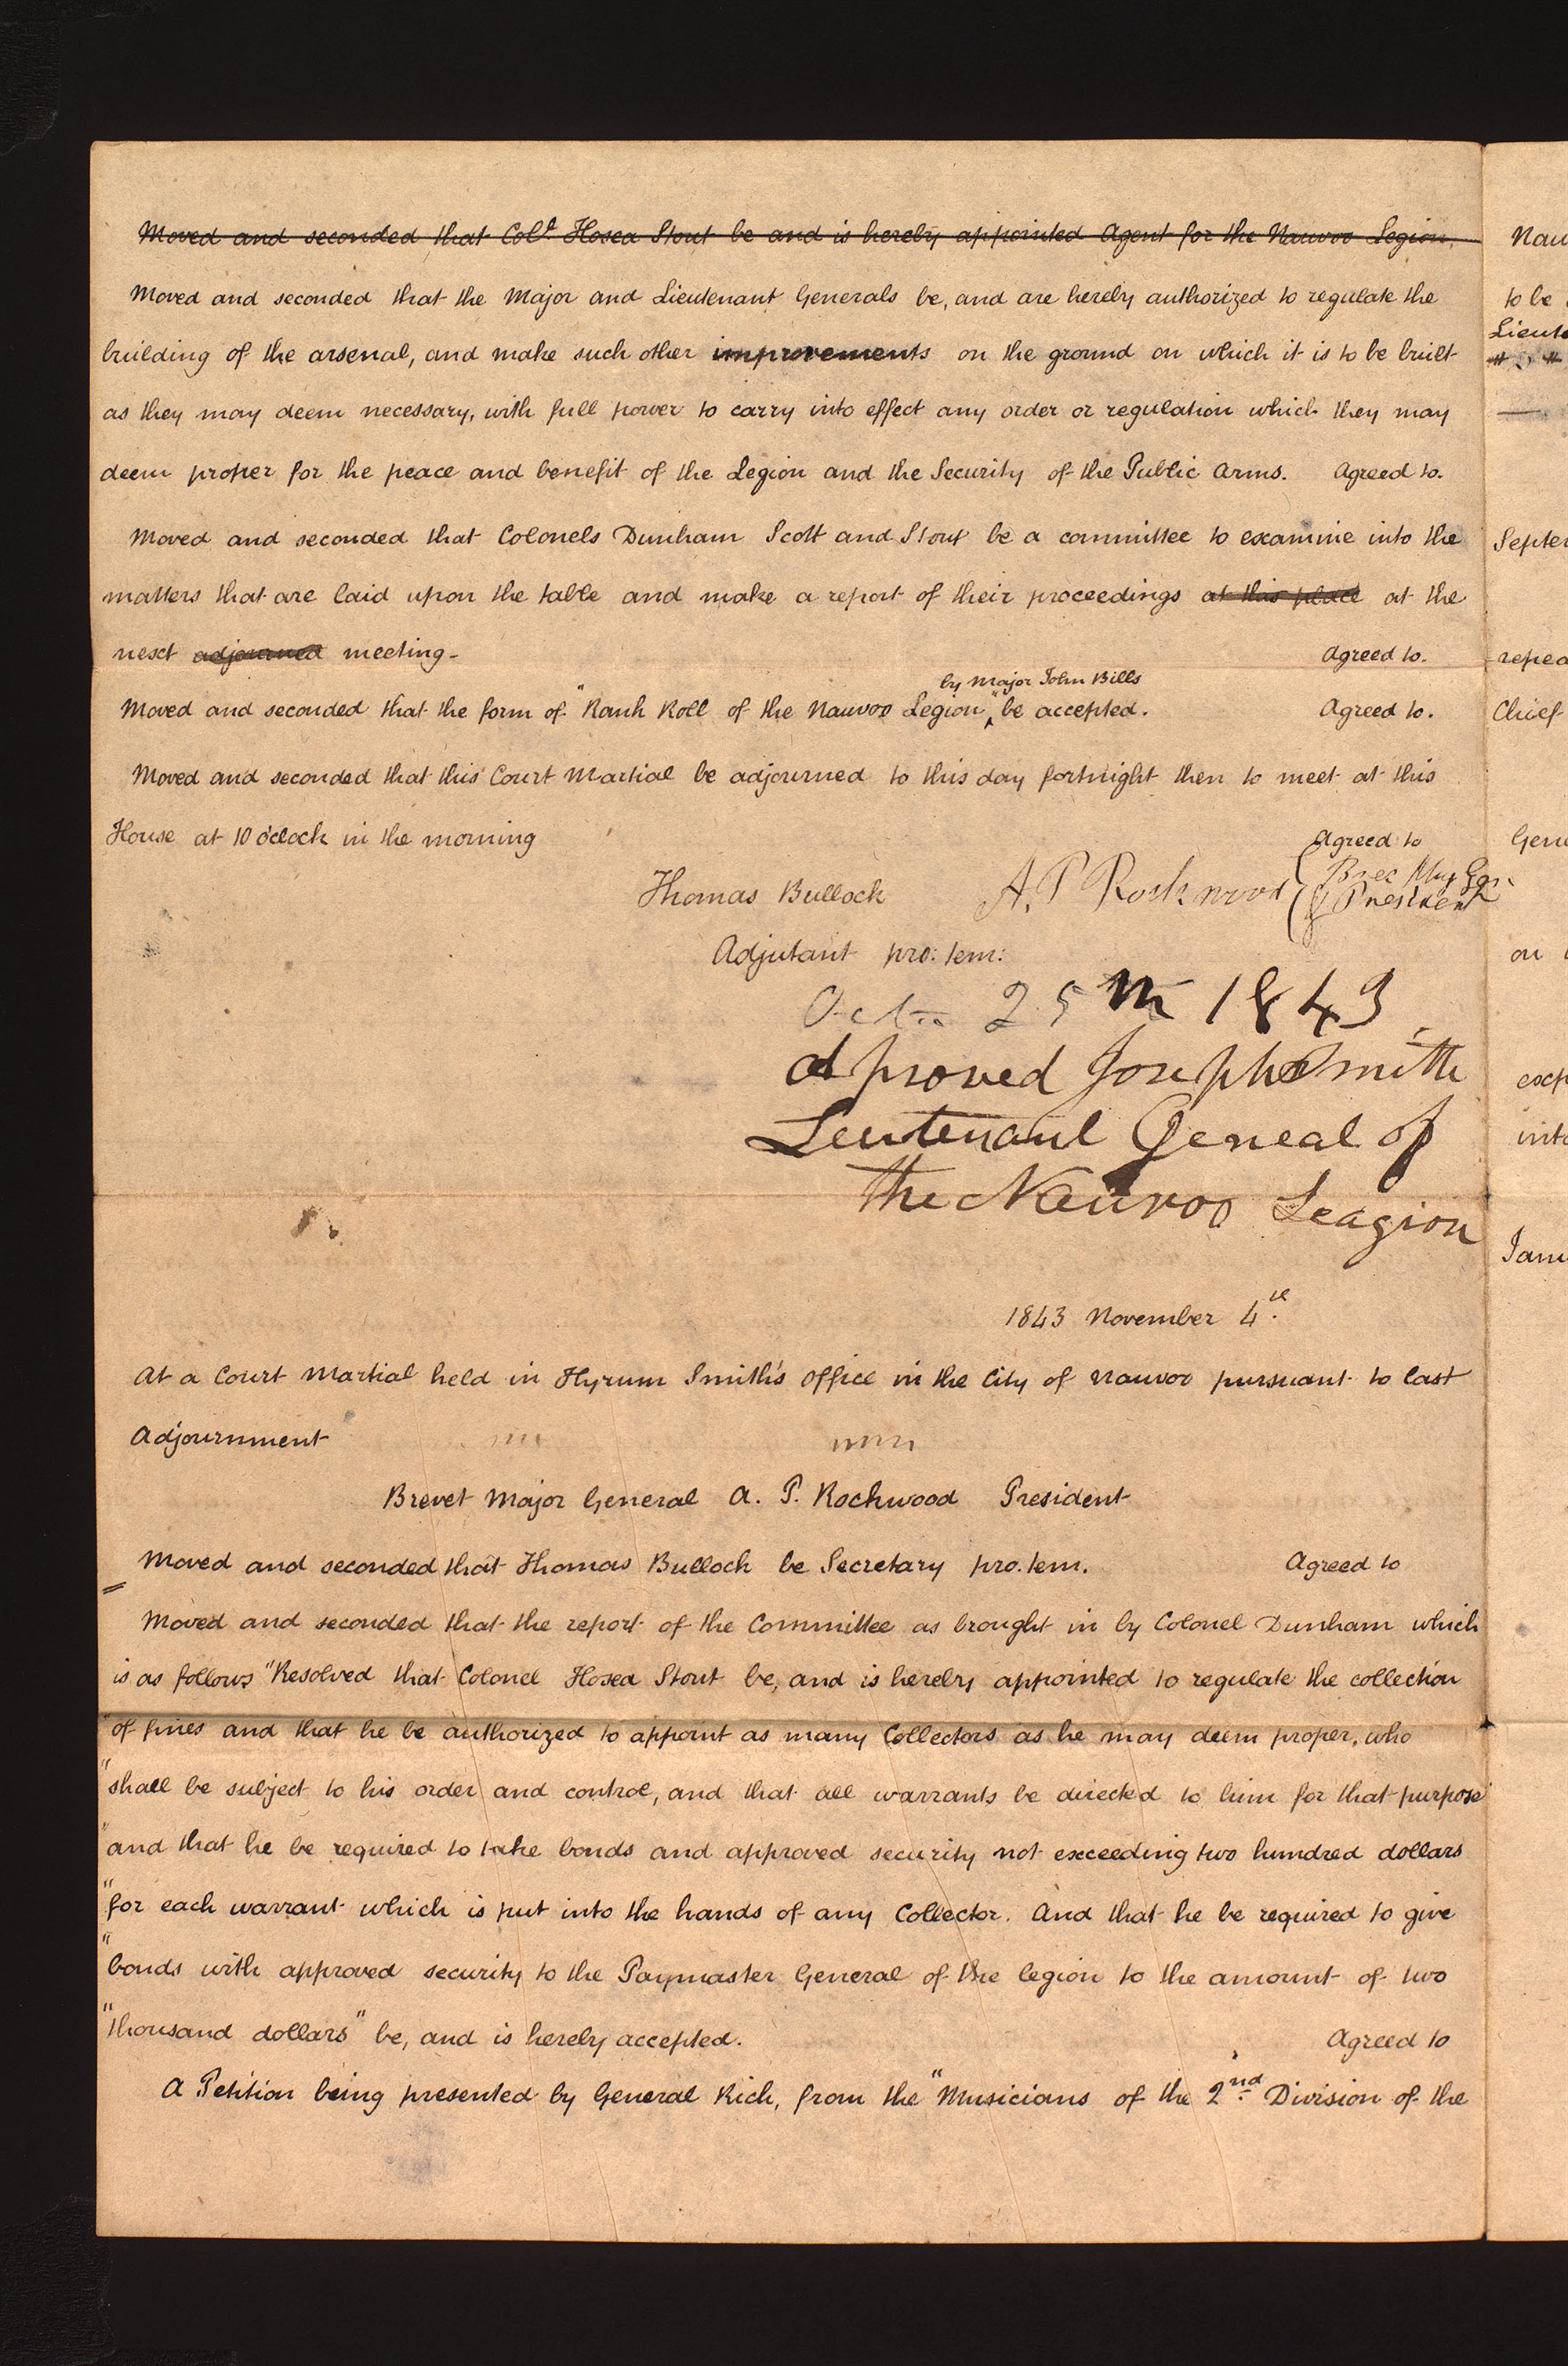 Moved and seconded that Col.l Hosea Stout be and is hereby appointed Agent for the Nauvoo Legion.
Moved and seconded that the Major and Lieutenant Generals be, and are hereby authorized to regulate the
building of the arsenal, and make such other improvements on the ground on which it is to be built
as they may deem necessary, with full power to carry into effect any order or regulation which they may
deem proper for the peace and benefit of the Legion and the Security of the Public Arms. Agreed to.
Moved and seconded that Colonels Dunham Scott and Stout be a committee to examine into the
matters that are laid upon the table and make a report of their proceedings at this place at the
next adjourned meeting- Agreed to.
by Major John Bills
Moved and seconded that the form of "Rank Roll of the Nauvoo Legion" be accepted. Agreed to.
Moved and seconded that this Court Martial be adjourned to this day fortnight then to meet at this
House at 10 o'clock in the morning Agreed to
Thomas Bullock A. P Rockwood Brec Maj Gen
& President
Adjutant pro: tem:
Oct 25th 1843
Approved Joseph Smith
Leutenant Geneal of
the Nauvoo Leagion
1843 November 4th.
At a Court Martial held in Hyrum Smith's Office in the City of Nauvoo pursuant to last
Adjournment
Brevet Major General A. P. Rockwood President
Moved and seconded that Thomas Bullock be Secretary pro. tem. Agreed to
Moved and seconded that the report of the Committee as brought in by Colonel Dunham which
is as follows "Resolved that Colonel Hosea Stout be, and is hereby appointed to regulate the collection
"of fines and that he be authorized to appoint as many Collectors as he may deem proper, who
"shall be subject to his order and control, and that all warrants be directed to him for that purpose
"and that he be required to take bonds and approved security not exceeding two hundred dollars
"for each warrant which is put into the hands of any Collector. And that he be required to give
"bonds with approved security to the Paymaster General of the legion to the amount of two
"thousand dollars" be, and is hereby accepted. Agreed to
A Petition being presented by General Rich, from the "Musicians of the 2nd Division of the
Nau
to be
Lieute
Septem
repea
Chief
Gene
on
exp
into
Janu